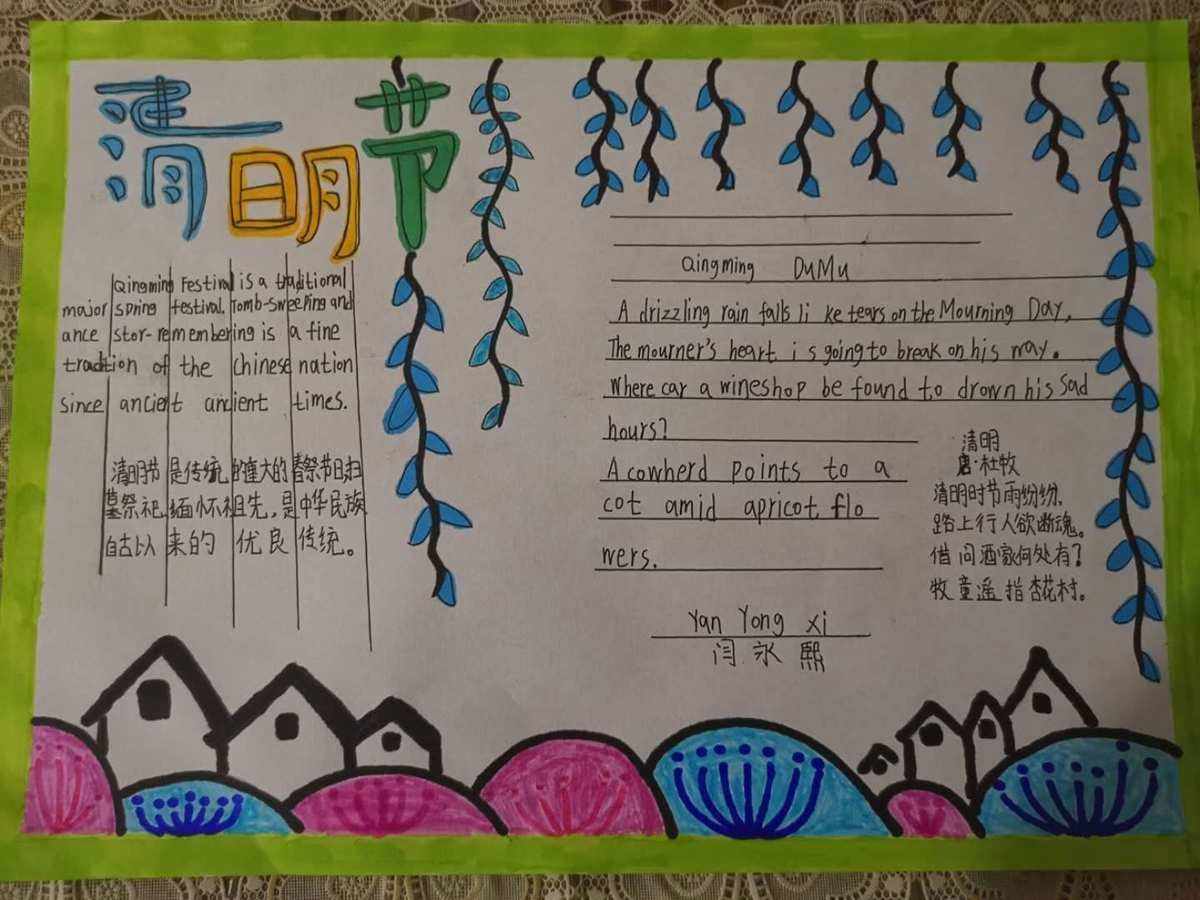 清明节
Qingming Festival is a traditional
major spring festival. Tomb-sweeping and
ance stor-remembering is a fine
tradition of the Chinese nation
since ancient ancient times.
清明节是传统的重大的春祭节日扫
墓祭祀、缅怀祖先,是中华民族
自古以来的优良传统。
Qingming DuMu
A drizzling rain falls li ke tears on the Mourning Day,
The mourner's heart is going to break on his way.
Where can a wineshop be found to drown his sad
hours?
A cowherd points to a
cot amid apricot flo
wers.
Yan Yong xi
闫永熙
清明
唐·杜牧
清明时节雨纷纷,
路上行人欲断魂。
借问酒家何处有?
牧童遥指杏花村。